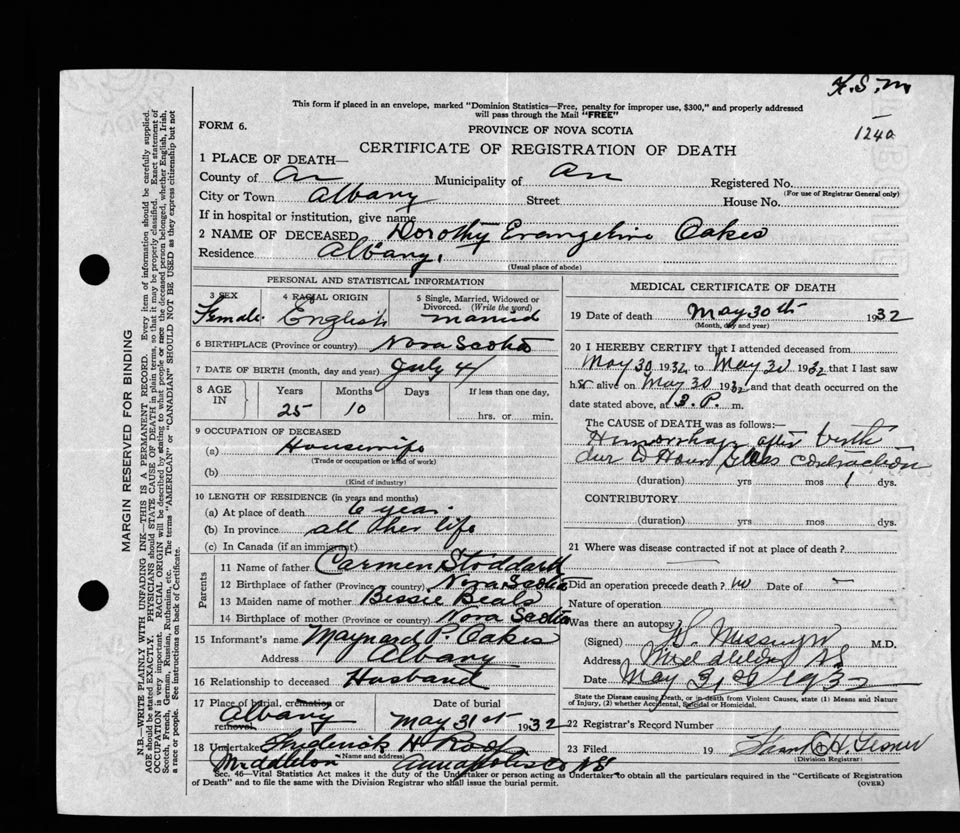 K.S.M
1240
This form if placed in an envelope, marked "Dominion Statistics—Free, penalty for improper use, $300," and properly addressed
will pass through the Mail "FREE"
FORM 6.
PROVINCE OF NOVA SCOTIA
CERTIFICATE OF REGISTRATION OF DEATH
1 PLACE OF DEATH—
County of An Municipality of An Registered No.
(For use of Registrar General only)
City or Town Albany Street House No.
If in hospital or institution, give name
2 NAME OF DECEASED Dorothy Evangeline Oakes
Residence Albany,
(Usual place of abode)
PERSONAL AND STATISTICAL INFORMATION
3 SEX 4 RACIAL ORIGIN 5 Single, Married, Widowed or
Divorced. (Write the word)
Female English married
6 BIRTHPLACE (Province or country) Nova Scotia
7 DATE OF BIRTH (month, day and year) July
8 AGE IN Years Months Days If less than one day,
25 10 hrs. or min.
9 OCCUPATION OF DECEASED
(a) Housewife
(Trade or occupation or kind of work)
(b)
(Kind of industry)
10 LENGTH OF RESIDENCE (in years and months)
(a) At place of death 6 year.
(b) In province all her life
(c) In Canada (if an immigrant)
Parents
11 Name of father Carmen Stoddart
12 Birthplace of father (Province or country) Nova Scotia
13 Maiden name of mother Bessie Beals
14 Birthplace of mother (Province or country) Nova Scotia
15 Informant's name Maynard P. Oakes
Address Albany
16 Relationship to deceased Husband
17 Place of burial, cremation or removal Date of burial
Albany May 31st 1932
18 Undertaker Frederick H Roop
(Name and address)
Middleton Annapolis Co NS
MEDICAL CERTIFICATE OF DEATH
19 Date of death May 30th 1932
(Month, day and year)
20 I HEREBY CERTIFY that I attended deceased from
May 30 1932, to May 30 1932 that I last saw
h er alive on May 30 1932 and that death occurred on the
date stated above, at 3.P. m.
The CAUSE of DEATH was as follows:—
Hemorrhage after birth
due to Hour Glass contraction
(duration) yrs mos 1 dys.
CONTRIBUTORY
(duration) yrs mos dys.
21 Where was disease contracted if not at place of death?
Did an operation precede death? no Date of
Nature of operation
Was there an autopsy?
(Signed) M.D.
Address Middleton NS
Date May 31st 1932
State the Disease causing Death, or in death from Violent Causes, state (1) Means and Nature
of Injury, (2) whether Accidental, Suicidal or Homicidal.
22 Registrar's Record Number
23 Filed 19
(Division Registrar)
Sec. 46—Vital Statistics Act makes it the duty of the Undertaker or person acting as Undertaker to obtain all the particulars required in the "Certificate of Registration
of Death" and to file the same with the Division Registrar who shall issue the burial permit.
(OVER)
MARGIN RESERVED FOR BINDING
N.B.—WRITE PLAINLY WITH UNFADING INK—THIS IS A PERMANENT RECORD. Every item of information should be carefully supplied.
AGE should be stated EXACTLY. PHYSICIANS should STATE CAUSE OF DEATH in plain terms, so that it may be properly classified. Exact statement of
OCCUPATION is very important. RACIAL ORIGIN will be described by stating to what people or race the deceased person belonged, whether English, Irish,
Scotch, French, German, Russian, Ruthenian, etc. The terms "AMERICAN" or "CANADIAN" SHOULD NOT BE USED as they express citizenship but not
a race or people. See instructions on back of Certificate.